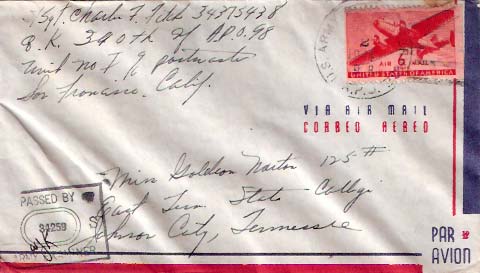 Sgt. Charles F. 34375438
340th A.P.O. 98
Unit no 1 % postmaster
San Francisco. Calif.
U.S. ARMY
A.P.O.
AIR 6¢ MAIL
UNITED STATES OF AMERICA
VIA AIR MAIL
CORREO AEREO
Miss Goldeon 125#
East Tenn State College
Johnson City, Tennessee
PASSED BY
34259
ARMY EXAMINER
PAR
AVION